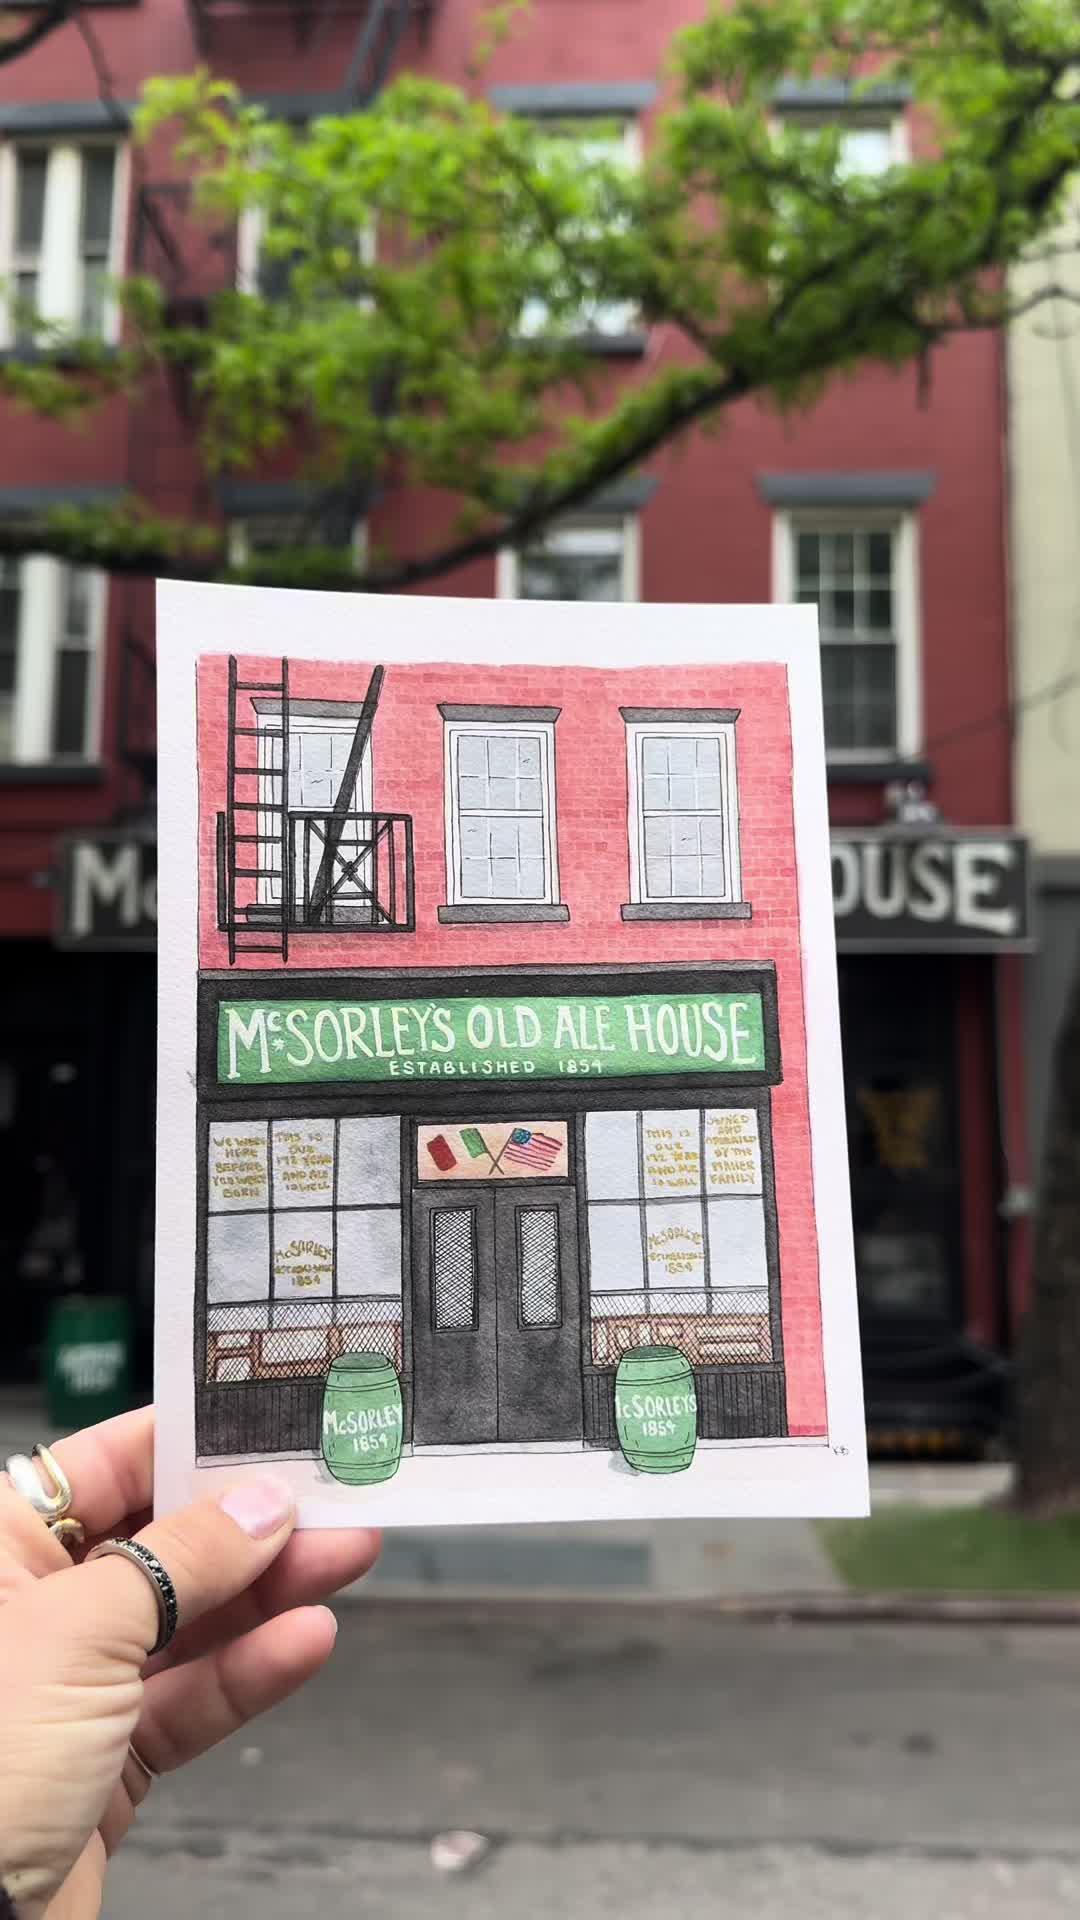 Mc
OUSE
McSORLEY'S OLD ALE HOUSE
ESTABLISHED 1854
WE WERE
HERE
BEFORE
YOU WERE
BORN
THIS IS
OUR
172 YEAR
AND ALE
IS WELL
THIS IS
OUR
172 YEAR
AND ALE
IS WELL
OWNED
AND
OPERATED
BY THE
MAHER
FAMILY
McSORLEY
ESTABLISHED
1854
McSORLEYS
ESTABLISHED
1854
McSORLEY
1854
McSORLEYS
1854
KB